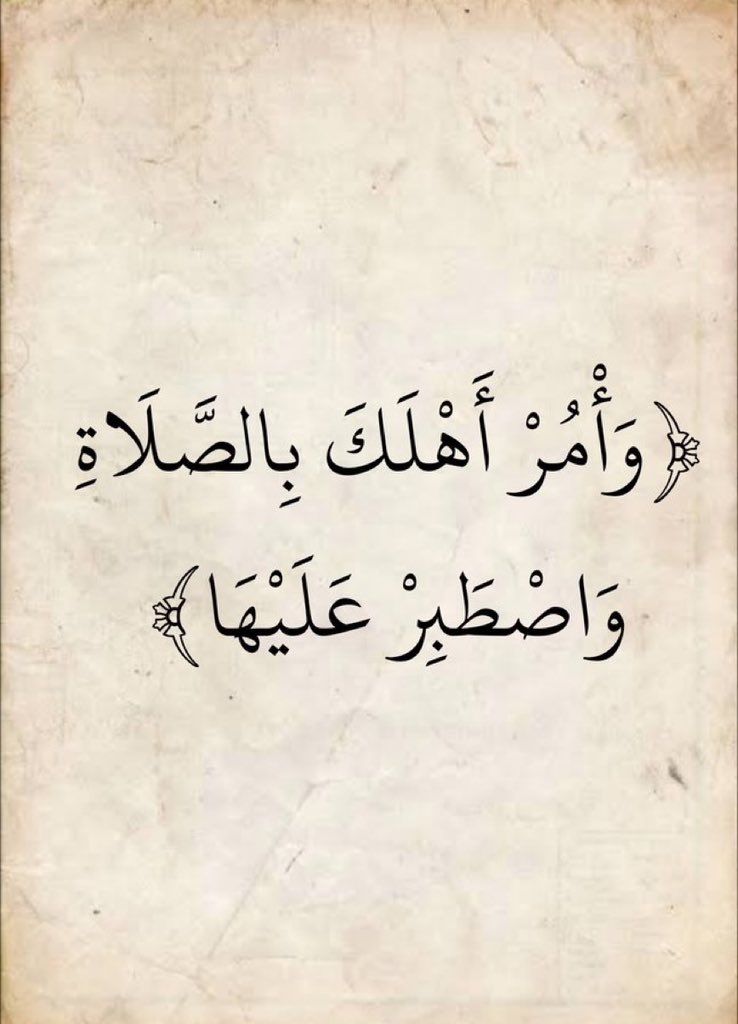 ﴿وَأْمُرْ أَهْلَكَ بِالصَّلَاةِ
وَاصْطَبِرْ عَلَيْهَا﴾